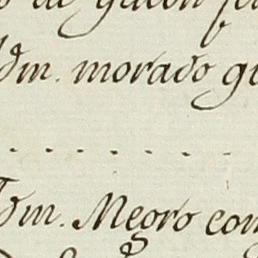 de galon
Idm. morado
Idm. Negro con